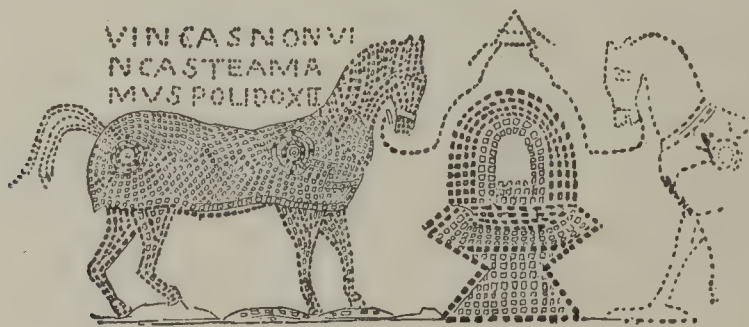 VINCASNONVI
NCASTEAMA
MVSPOLIDOXE